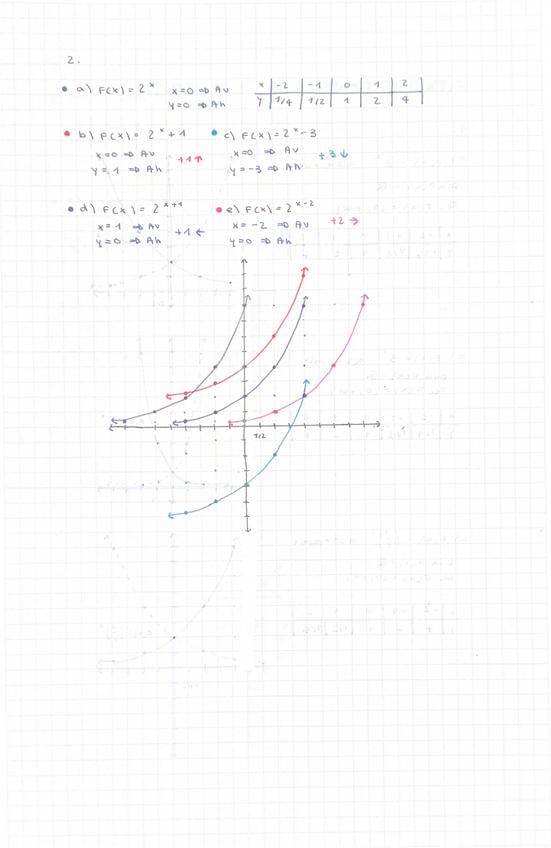 2.
• a) F(x) = 2^x
x=0 ⇒ Av
y=0 ⇒ Ah
x | -2 | -1 | 0 | 1 | 2
y | 1/4 | 1/2 | 1 | 2 | 4
• b) F(x) = 2^x + 1
x=0 ⇒ Av
y=1 ⇒ Ah
+1 ↑
• c) F(x) = 2^x - 3
x=0 ⇒ Av
y=-3 ⇒ Ah
+3 ↓
• d) F(x) = 2^(x+1)
x=1 ⇒ Av
y=0 ⇒ Ah
+1 ←
• e) F(x) = 2^(x-2)
x=-2 ⇒ Av
y=0 ⇒ Ah
+2 →
1/2